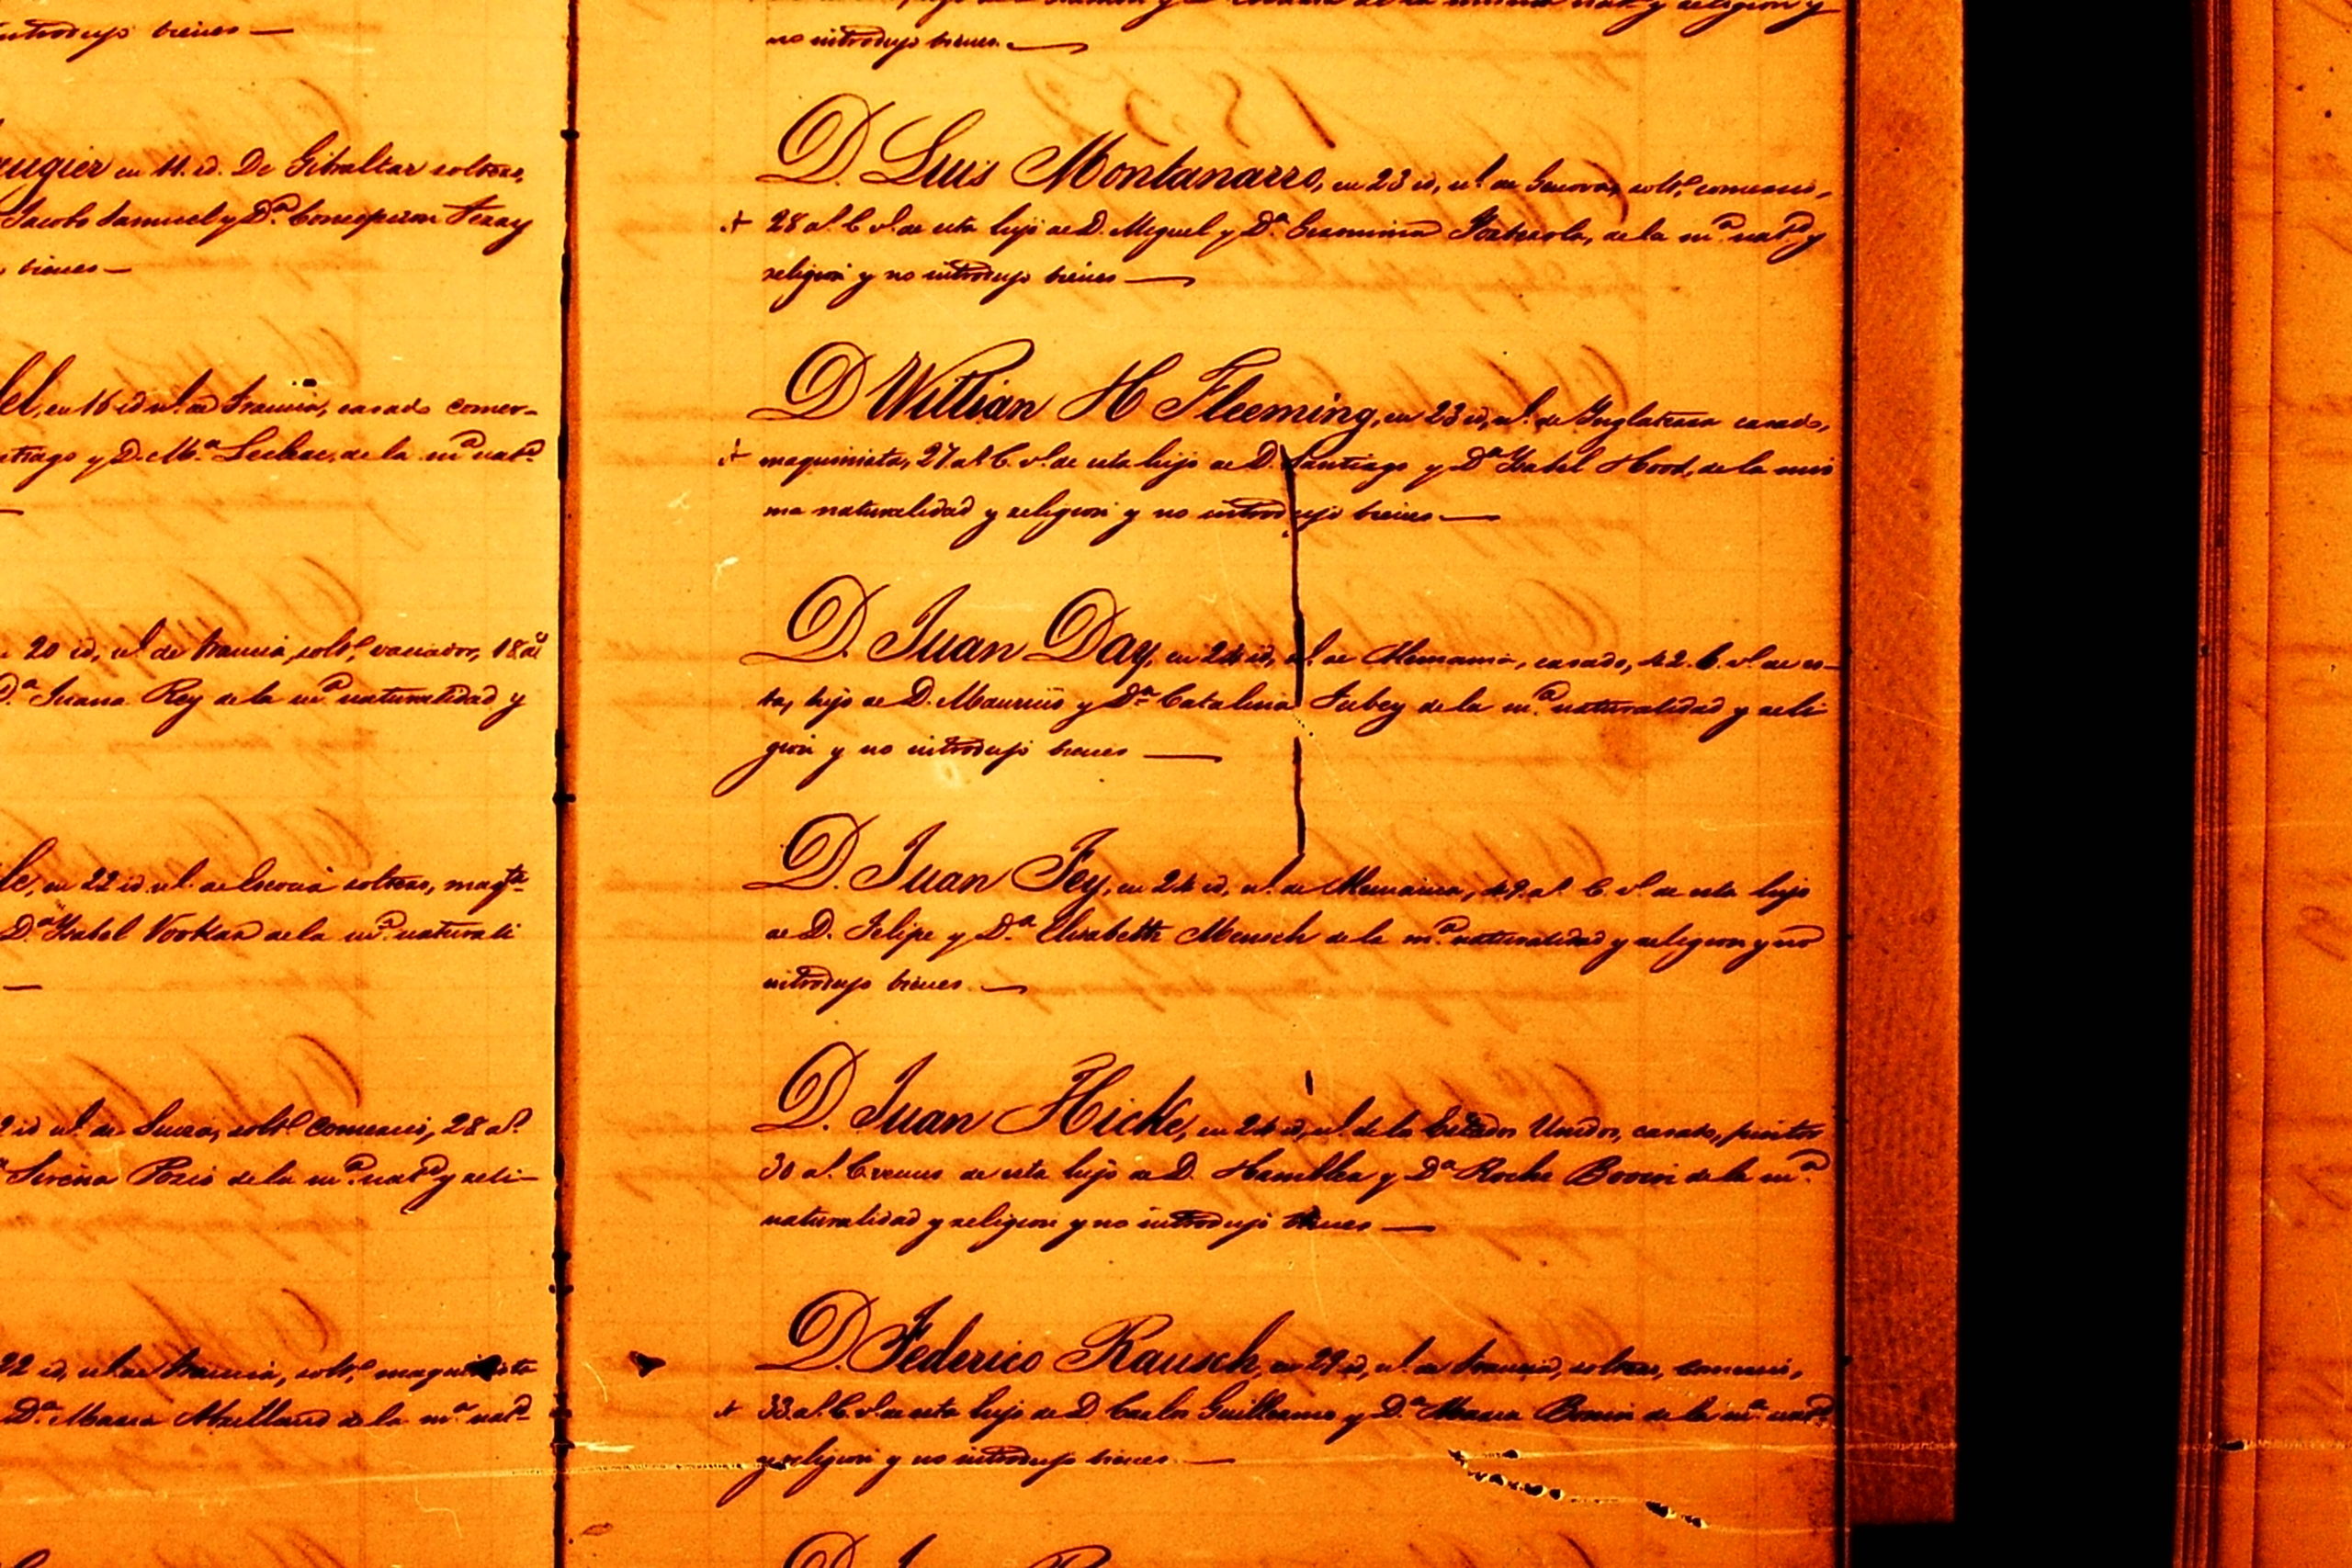 introdujo bienes —
ugier en 11. id. De Gibraltar soltero,
Jacobo Samuel y Dª Concepcion Feray
bienes —
el, en 16 id nl. de Francia, casado comer-
ntiago y D. Mª Leckac, de la mª natd
20 id, nl. de Francia, soltº, vaciador, 18 al
Dª Juana Rey de la mª naturalidad y
le, en 22 id. nl. de Escocia soltero, maqta
Dª Ysabel Vookar de la mª naturali
id nl. de Suiza, soltº comercio, 28 al.
Serena Pozis de la mª natd y reli-
22 id, nl. de Francia, soltº maquinista
Dª Maria Maillard de la mª natd
de la misma nat. y religion y
no introdujo bienes. —
D. Luis Montanarro, en 23 id, nl. de Genova, soltº comercio,
28 al. C. vl. de esta hijo de D. Miguel y Dª Erminia, de la mª natd y
religion y no introdujo bienes —
D Willian H Fleeming, en 23 id, nl. de Ynglaterra casado,
maquinista, 27 al C. vl. de esta hijo de D. Santiago y Dª Ysabel Hood, de la mis
ma naturalidad y religion y no introdujo bienes —
D. Juan Day, en 24 id, nl. de Alemania, casado, 42. C. vl. de es-
ta, hijo de D. Mauricio y Dª Catalina Fubey de la mª naturalidad y reli
gion y no introdujo bienes —
D. Juan Fey, en 24 id, nl. de Alemania, 49. al. C. vl. de esta hijo
de D. Felipe y Dª Elisabetth Mensch de la mª naturalidad y religion y no
introdujo bienes. —
D. Juan Hicke, en 24 id, nl. de los Estados Unidos, casado, pintor
30 al. C vecino de esta hijo de D. Hamblea y Dª Roche Bovin de la mª
naturalidad y religion y no introdujo bienes —
D. Federico Rausch, en 29 id, nl. de Francia, soltero, comercio,
33 al. C. vl. de esta hijo de D. Carlos Guillermo y Dª Maria Bonin de la mª natd
y religion y no introdujo bienes. —